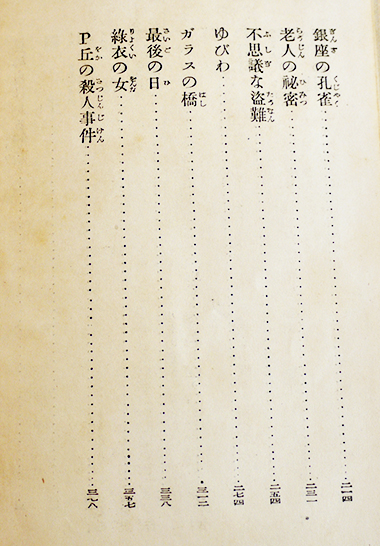 銀座の孔雀 二一四
老人の祕密 二三一
不思議な盗難 二五四
ゆびわ 二七四
ガラスの橋 三一二
最後の日 三三八
綠衣の女 三五七
P丘の殺人事件 三七八